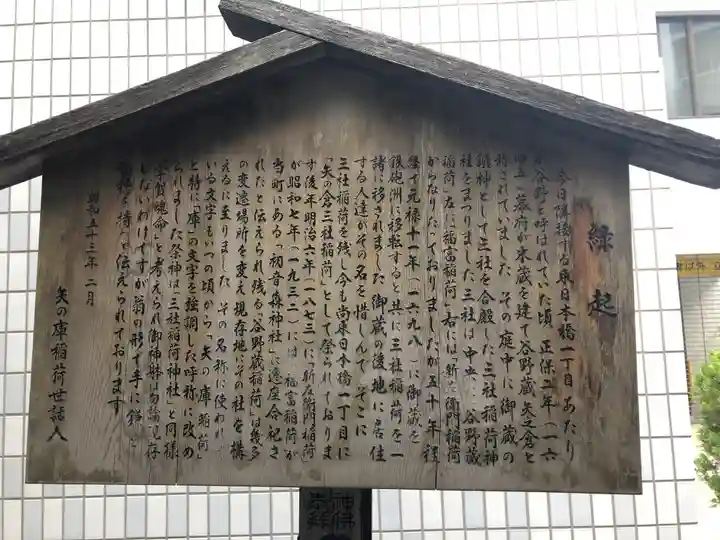 縁起
今日隣接する東日本橋一丁目あたり
が谷野と呼ばれていた頃 正保二年(一六
四五)幕府が米蔵を建て谷野蔵 矢之倉と
称されていました その庭中に御蔵の
鎮神として三社を合殿した三社稲荷神
社をまつりました 三社は中央に「谷野蔵
稲荷」左に「福富稲荷」右には「新左衛門稲荷」
からなりたっておりましたが五十年程
経て元禄十一年(一六九八)に御蔵を
鉄砲洲に移転すると共に三社稲荷を一
諸に移されました 御蔵の後地に居住
する人達がその名を惜しんで そこに
三社稲荷を残し今も尚東日本橋一丁目に
「矢の倉三社稲荷」として祭られておりま
す 後年明治六年(一八七三)に「新左衛門稲荷」
が昭和七年(一九三二)には「福富稲荷」が
当町にある「初音森神社」に遷座合祀さ
れたと伝えられ残る「谷野蔵稲荷」は幾多
の変遷場所を変え現存地にその社を構
えるに至りました その名称に使われて
いる文字もいつの頃から「矢の庫稲荷」
と特に「庫」の文字を強調した呼称に改め
られました 祭神は「三社稲荷神社」と同様
賀魂命」と考えられ御神躰は勿論現存
しないわけですが翁の形で手に鎌と
を持つと伝えられております
昭和五十三年二月
矢の庫稲荷世話人